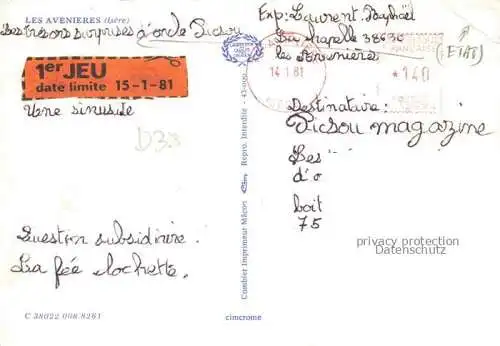 LES AVENIERES (Isère)
Les trésors surprises d'oncle Picsou
1er JEU
date limite 15-1-81
Une sinusite
D33
Question subsidiaire.
La fée clochette.
C 38022 008 8261
Combier Imprimeur Mâcon
Repro. Interdite - 43-000
cimcrome
Exp: Laurent Raphaël
La Chapelle 38630
les Avenières
(ETAB)
14 1 81
*140
Destinataire:
Picsou magazine
Les
d'o
boit
75
privacy protection
Datenschutz